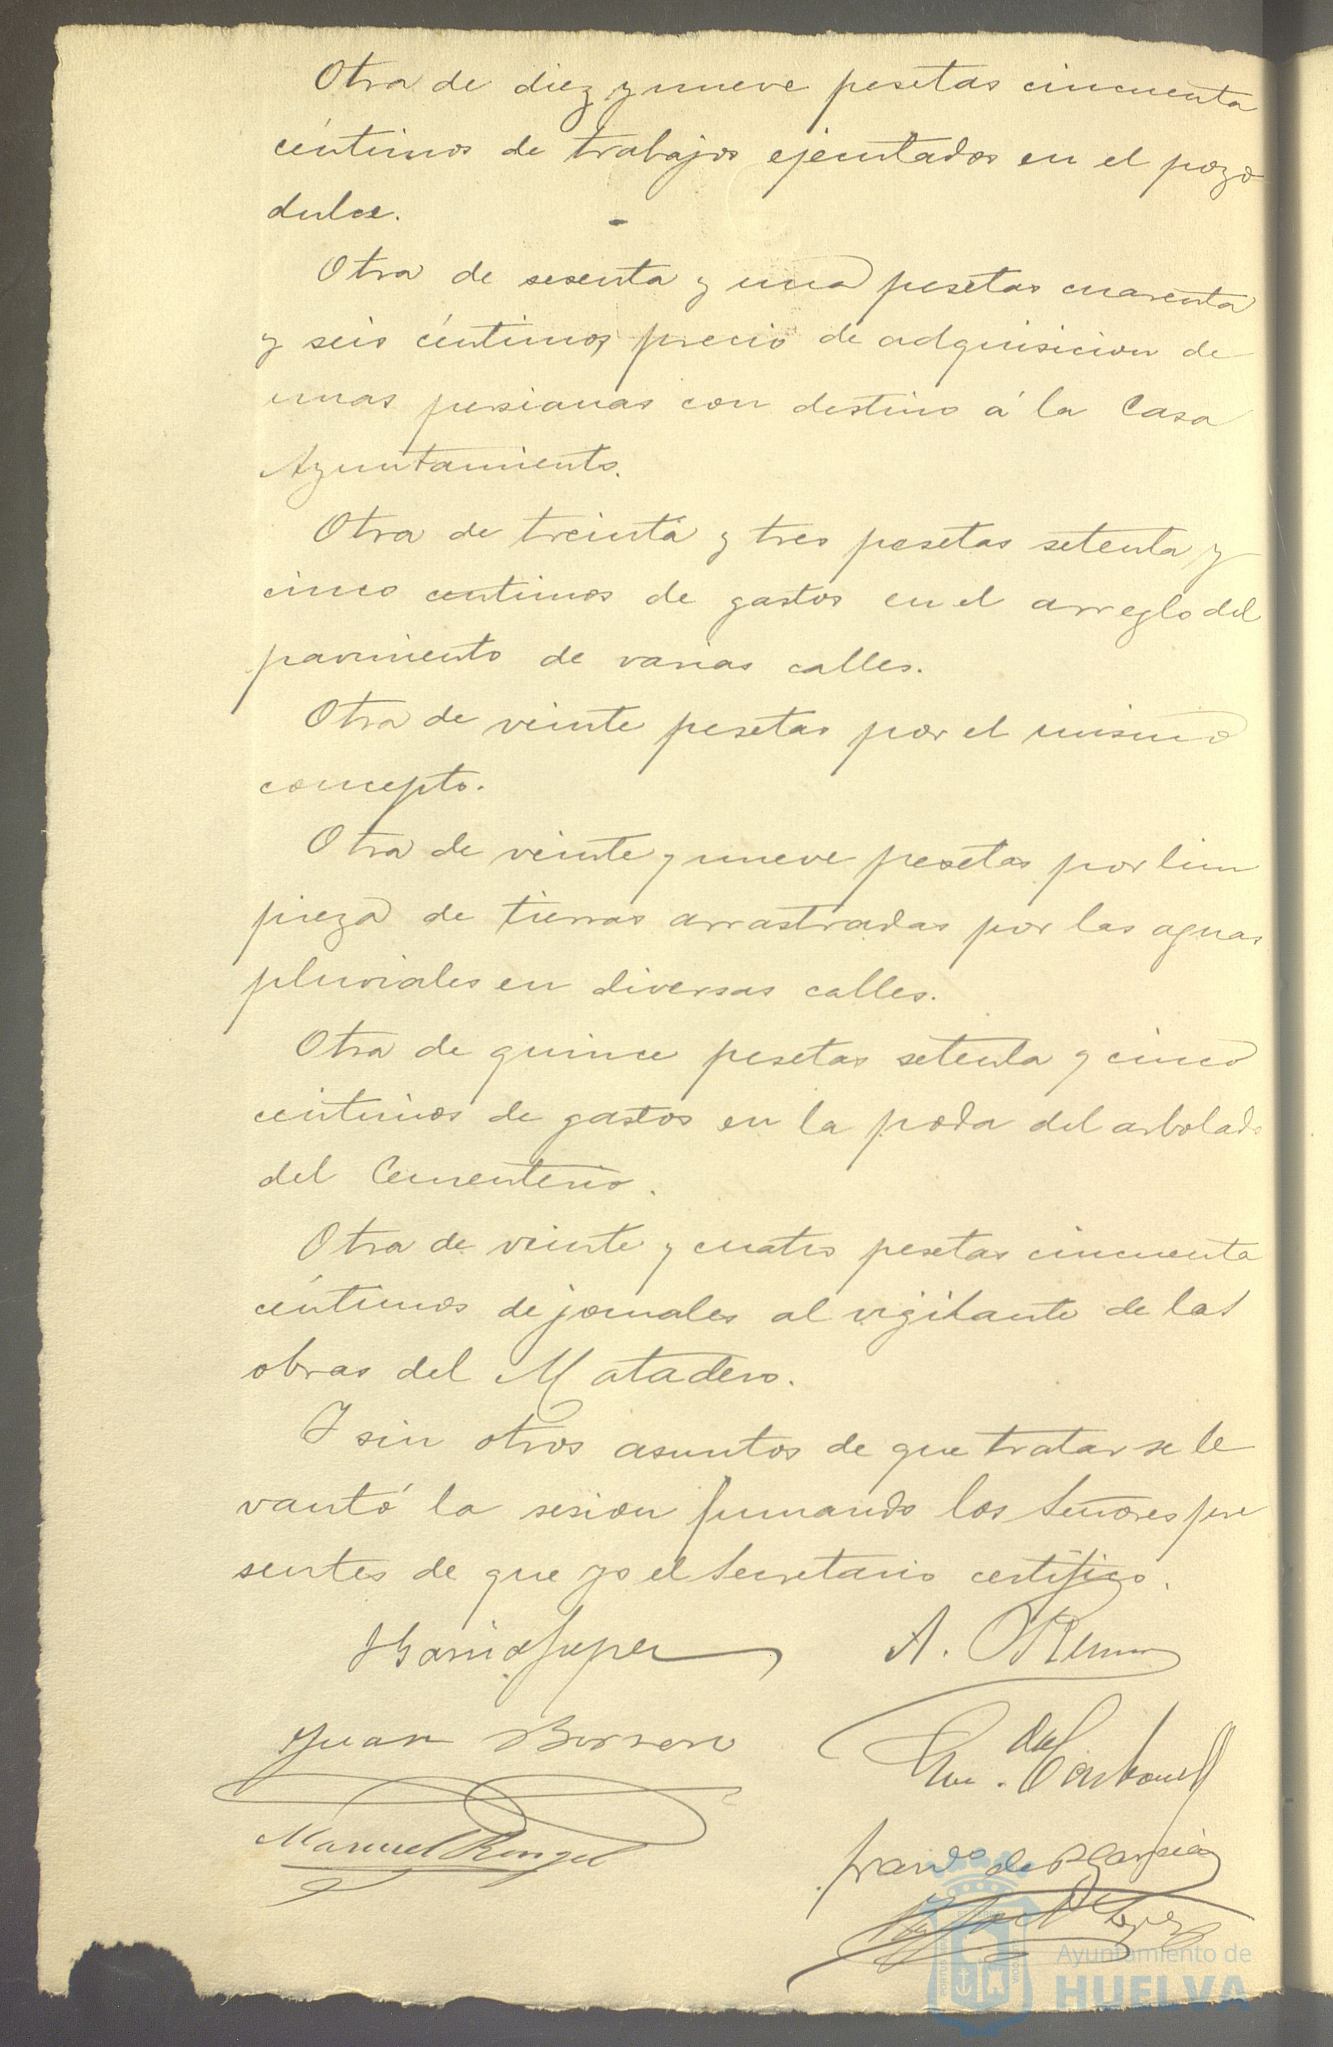 Otra de diez y nueve pesetas cincuenta
céntimos de trabajos ejecutados en el pozo
dulce.
Otra de sesenta y una pesetas cuarenta
y seis céntimos precio de adquisicion de
unas persianas con destino á la Casa
Ayuntamiento.
Otra de treinta y tres pesetas setenta y
cinco centimos de gastos en el arreglo del
pavimento de varias calles.
Otra de veinte pesetas por el mismo
concepto.
Otra de veinte y nueve pesetas por lim
pieza de tierras arrastradas por las aguas
pluviales en diversas calles.
Otra de quince pesetas setenta y cinco
centimos de gastos en la poda del arbolado
del Cementerio.
Otra de veinte y cuatro pesetas cincuenta
céntimos de jornales al vigilante de las
obras del Matadero.
Y sin otros asuntos de que tratar se le
vantó la sesion firmando los Señores pre
sentes de que yo el Secretario certifico.
A.
Juan Borrero
Carbonell
Manuel Rengel
de Garcia
Ayuntamiento de
HUELVA